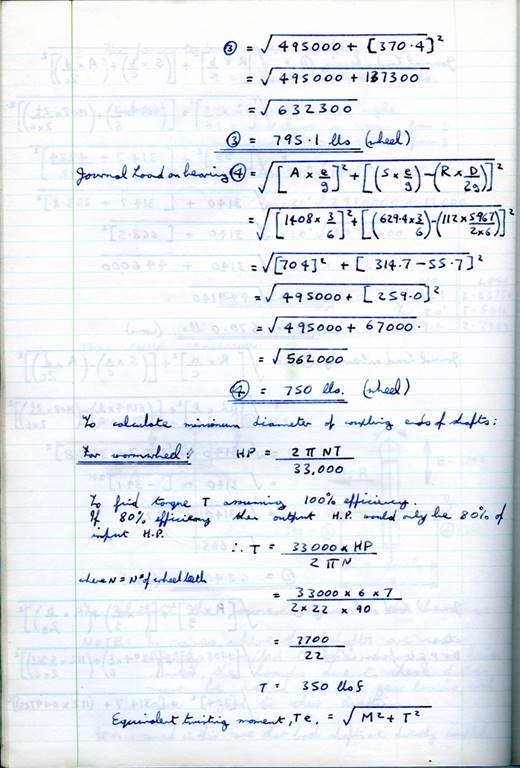 ③ = √495000 + [370.4]²
= √495000 + 137300
= √632300
③ = 795.1 lbs (wheel)
Journal Load on bearing ④ = √[A × e/g]² + [(S × e/g) − (R × D/2g)]²
= √[1408 × 3/6]² + [(629.4 × 3/6) − (112 × 5.967/2×6)]²
= √[704]² + [314.7 − 55.7]²
= √495000 + [259.0]²
= √495000 + 67000.
= √562000
④ = 750 lbs. (wheel)
To calculate minimum diameter of coupling ends of shafts:
For wormwheel: HP = 2πNT / 33,000
To find torque T assuming 100% efficiency.
If 80% efficiency then output H.P. would only be 80% of
input H.P.
∴ T = 33000 × HP / 2πN
where N = Nº of wheel teeth
= 33000 × 6 × 7 / 2 × 22 × 90
= 7700 / 22
T = 350 lbs f
Equivalent twisting moment, Te, = √M² + T²